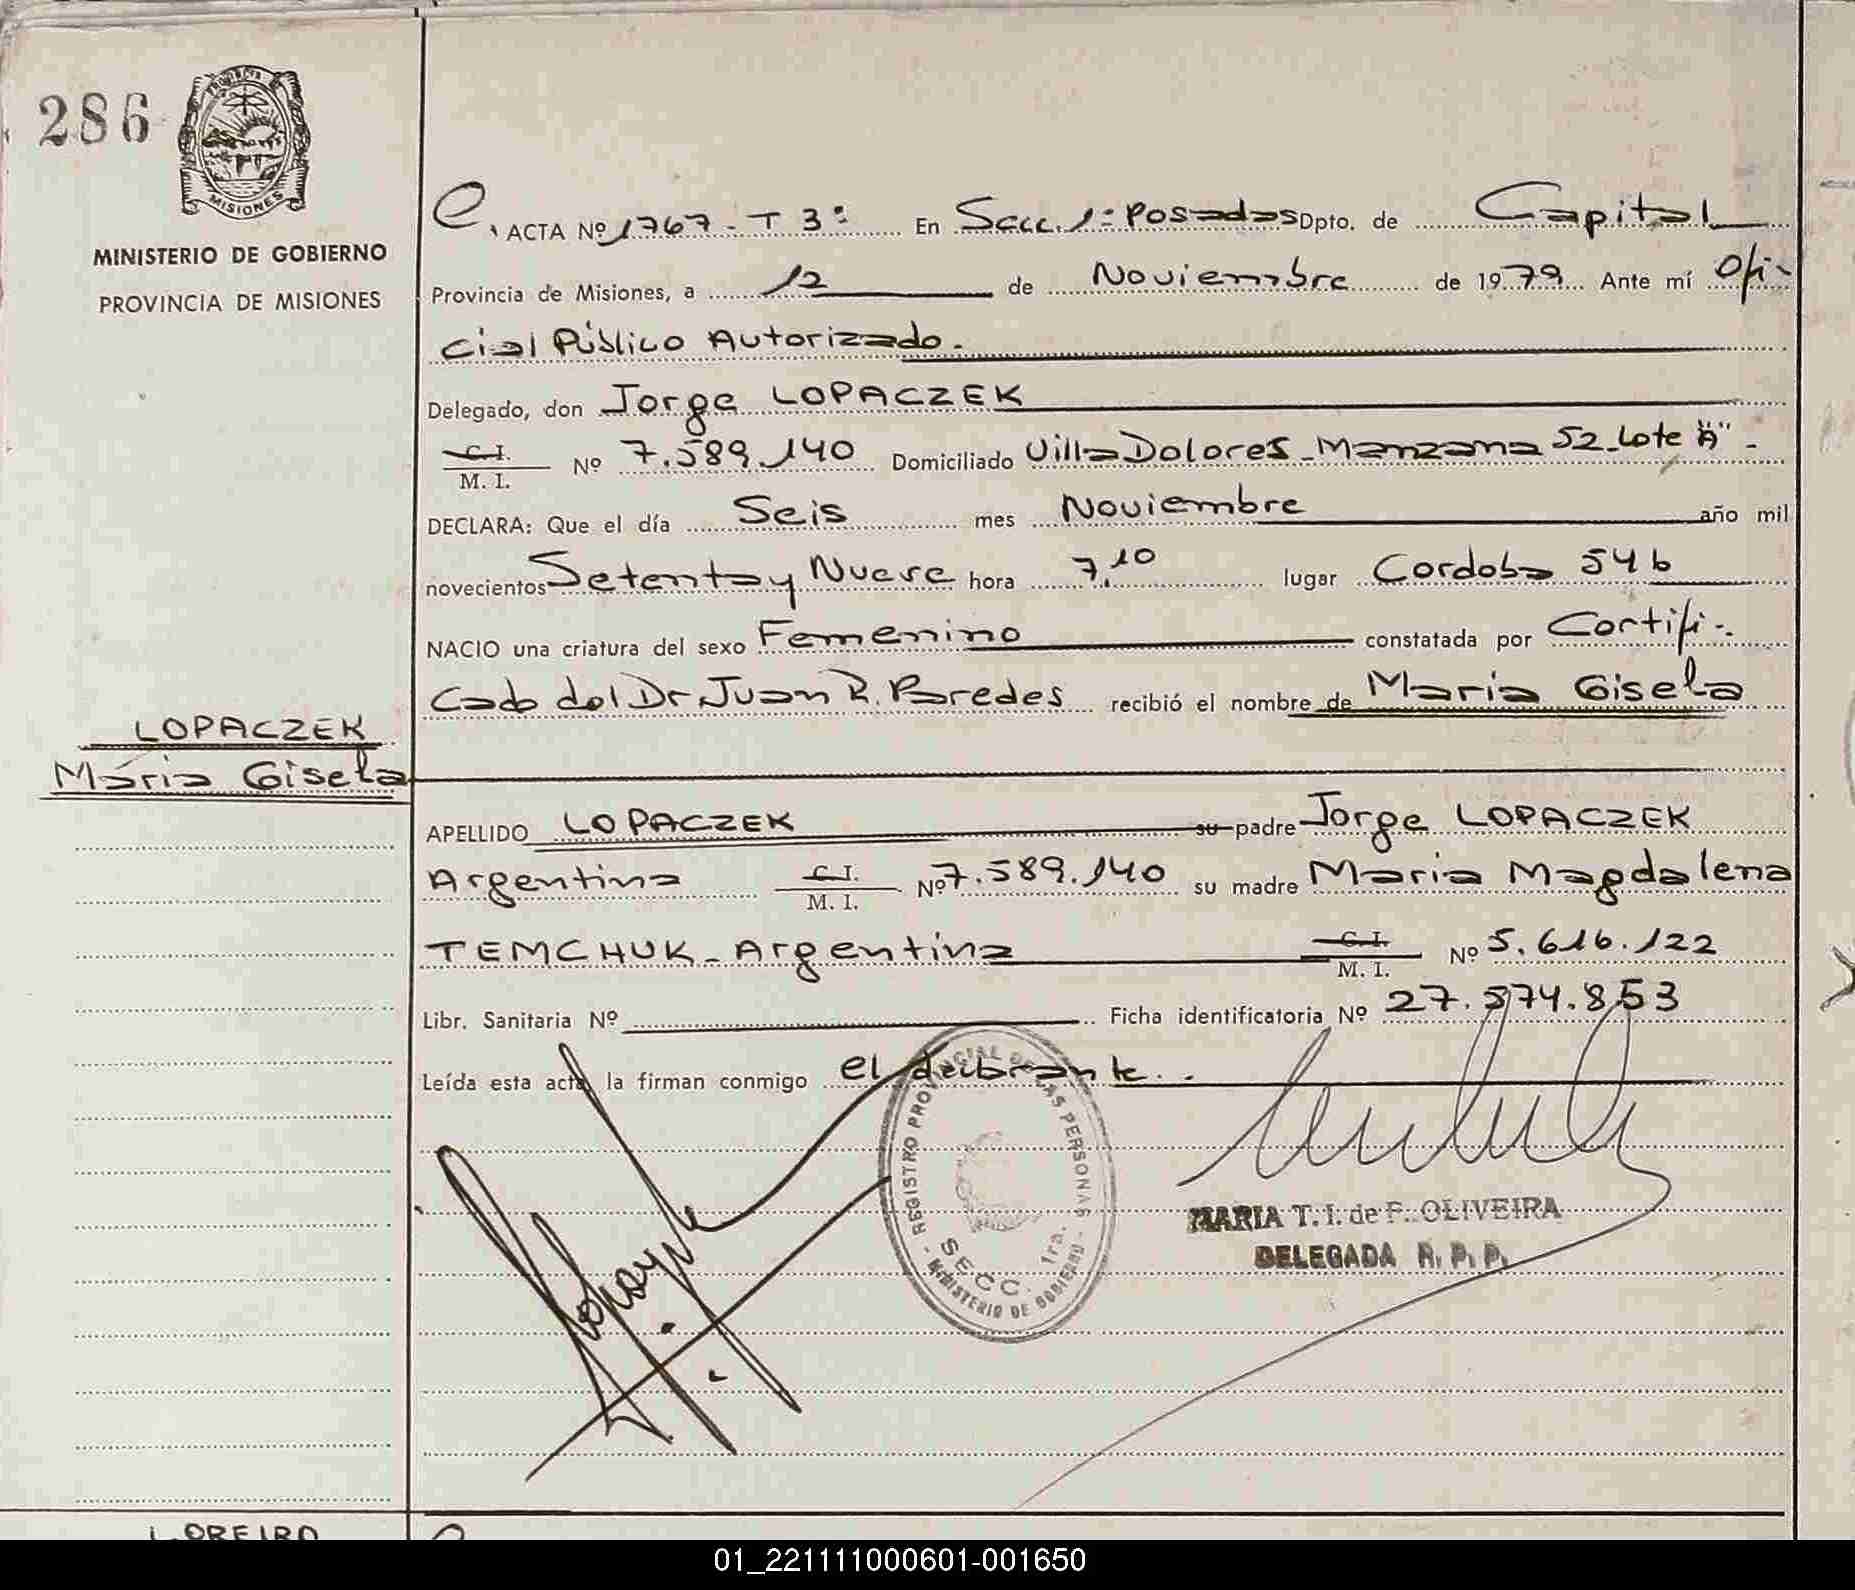 286
PROVINCIA
MISIONES
MINISTERIO DE GOBIERNO
PROVINCIA DE MISIONES
ACTA Nº 1767 - T 3º En Secc. 1º Posadas Dpto. de Capital
Provincia de Misiones, a 12 de Noviembre de 1979. Ante mí Ofi-
cial Público Autorizado.
Delegado, don Jorge LOPACZEK
C.I.
M. I. Nº 7.589.140 Domiciliado Villa Dolores - Manzana 52 - Lote "A" -
DECLARA: Que el día Seis mes Noviembre año mil
novecientos Setenta y Nueve hora 7,10 lugar Cordoba 546
NACIO una criatura del sexo Femenino constatada por Certifi-
cado del Dr Juan R. Paredes recibió el nombre de Maria Gisela
LOPACZEK
Maria Gisela
APELLIDO LOPACZEK su padre Jorge LOPACZEK
Argentina C.I.
M. I. Nº 7.589.140 su madre Maria Magdalena
TEMCHUK - Argentina C.I.
M. I. Nº 5.616.122
Libr. Sanitaria Nº Ficha identificatoria Nº 27.574.853
Leída esta acta, la firman conmigo el declarante.
REGISTRO PROVINCIAL DE LAS PERSONAS
SECC. 1ra.
- MINISTERIO DE GOBIERNO -
MARIA T. I. de F. OLIVEIRA
DELEGADA R. P. P.
LOREIRO
01_221111000601-001650